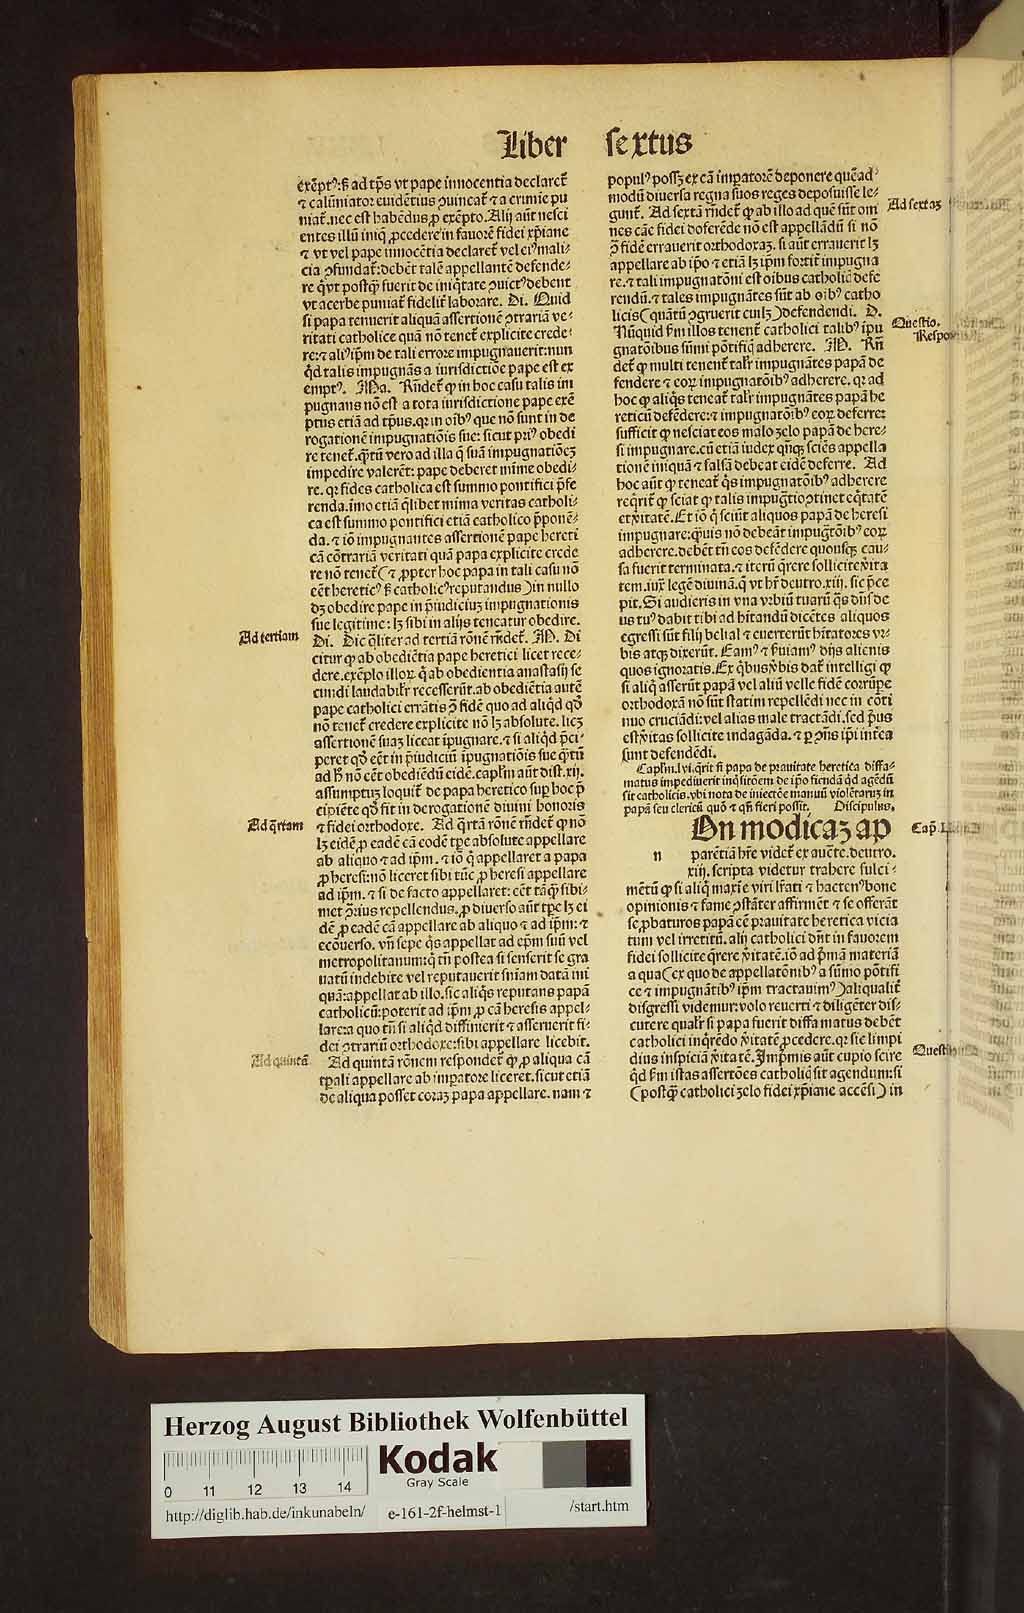 Liber sextus
exēptꝰ: sꝫ ad tp̄s vt pape innocentia declaret̄
⁊ calūniator euidētius ꝯuincat̄ ⁊ a crimīe pu
niat̄. nec est habēdus ꝓ exēpto. Alij aūt nesci
entes illū iniq̄ ꝓcedere in fauorē fidei xp̄iane
⁊ vt vel pape innocētia declaret̄ vel eiꝰ mali⸗
cia ꝯfundat̄: debēt talē appellantē defende⸗
re q̄ vt postq̄ꝫ fuerit de iniq̄tate ꝯuictꝰ debent
vt acerbe puniat̄ fidelit̄ laborare. Di. Quid
si papa tenuerit aliquā assertionē ꝯtrariā ve⸗
ritati catholice quā nō tenet̄ explicite crede⸗
re: ⁊ aliꝰ ip̄m de tali errore impugnauerit: nun
q̄d talis impugnās a iurisdictiōe pape est ex
emptꝰ. Ma. Rn̄det̄ ꝙ in hoc casu talis im
pugnans nō est a tota iurisdictione pape exē
ptus etiā ad tp̄us. qꝛ in oībꝰ que nō sunt in de
rogationē impugnatiōis sue: sicut priꝰ obedi
re tenet̄. q̄tū vero ad illa q̄ suā impugnatiōeꝫ
impedire valerēt: pape deberet mīme obedi⸗
re. qꝛ fides catholica est summo pontifici p̄fe
renda. imo etiā q̄libet mima veritas catholi⸗
ca est summo pontifici etiā catholico p̄ponē⸗
da. ⁊ iō impugnantes assertionē pape hereti
cā cōtrariā veritati quā papa explicite crede
re nō tenet̄ (⁊ ꝓpter hoc papa in tali casu nō
cēt hereticꝰ sꝫ catholicꝰ reputandus) in nullo
dꝫ obedire pape in p̄iudiciuꝫ impugnationis
sue legitime: lꝫ sibi in alijs teneatur obedire.
Ad tertiam
Di. Dic q̄liter ad tertiā rōnē rn̄det̄. M. Di
citur ꝙ ab obediētia pape heretici licet rece⸗
dere. exēplo illoꝝ q̄ ab obedientia anastasij se
cundi laudabilr̄ recesserūt. ab obediētia autē
pape catholici errātis ꝯ̄ fidē quo ad aliqd qd̓
nō tenet̄ credere explicite nō lꝫ absolute. licꝫ
assertionē suaꝫ liceat īpugnare. ⁊ si aliqd p̄ci⸗
peret qd̓ cēt in p̄iudiciū īpugnatiōis sue q̄tū
ad hꝫ nō cēt obediēdū eidē. capl̄m aūt dist. xij.
assumptuꝫ loquit̄ de papa heretico sup hoc p̄
cipiēte qd̓ fit in derogationē diuini honoris
Ad q̄rtam
⁊ fidei orthodoxe. Ad q̄rtā rōnē rn̄det̄ ꝙ nō
lꝫ eidē ꝓ eadē cā eodē tp̄e absolute appellare
ab aliquo ⁊ ad ip̄m. ⁊ iō q̄ appellaret a papa
ꝓ heresi: nō liceret sibi tūc ꝓ heresi appellare
ad ip̄m. ⁊ si de facto appellaret: cēt tāq̄ sibi⸗
met ꝯ̄rius repellendus. ꝓ diuerso aūt tp̄e lꝫ ei
dē ꝓ eadē cā appellare ab aliquo ⁊ ad ip̄m: ⁊
ecōuerso. vn̄ sepe q̄s appellat ad ep̄m suū vel
metropolitanum: q̄ tn̄ postea si senserit se gra
uatū indebite vel reputauerit sn̄iam datā ini
quā: appellat ab illo. sic aliq̄s reputans papā
catholicū: poterit ad ip̄m ꝓ cā heresis appel⸗
lare: a quo tn̄ si aliqd diffinierit ⁊ asseruerit fi⸗
dei ꝯtrariū orthodoxe: sibi appellare licebit.
Ad quintā
Ad quintā rōnem respondet̄ ꝙ ꝓ aliqua cā
tp̄ali appellare ab impatore liceret. sicut etiā
de aliqua posset coraꝫ papa appellare. nam ⁊
populꝰ possꝫ ex cā impatorē deponere quēad⸗
modū diuersa regna suos reges deposuisse le⸗
Ad sextaꝫ
gunt̄. Ad sextā rn̄det̄ ꝙ ab illo ad quē sūt om
nes cāe fidei deferēde nō est appellādū si nō
ꝯ̄ fidē errauerit orthodoxaꝫ. si aūt errauerit lꝫ
appellare ab ip̄o ⁊ etiā lꝫ ip̄m fortit̄ impugna
re. ⁊ tali impugnatōni est oībus catholicis defe
rendū. ⁊ tales impugnātes sūt ab oībꝰ catho
licis (quātū ꝯgruerit cuilꝫ) defendendi. D.
Questio.
Nūquid fm illos tenent̄ catholici talibꝰ īpu
Respon
gnatōibus sūmi pōtificis adherere. M. Rn̄
det̄ ꝙ multi tenent̄ talr̄ impugnātes papā de
fendere ⁊ eoꝝ impugnatōibꝰ adherere. qꝛ ad
hoc ꝙ aliq̄s teneat̄ talr̄ impugnātes papā he
reticū defēdere: ⁊ impugnatōibꝰ eoꝝ deferre:
sufficit ꝙ nesciat eos malo zelo papā de here⸗
si impugnare. cū etiā iudex qn̄qꝫ sciēs appella
tionē iniquā ⁊ falsā debeat eidē deferre. Ad
hoc aūt ꝙ teneat̄ q̄s impugnatōibꝰ adherere
req̄rit̄ ꝙ sciat ꝙ talis impuḡtio ꝯtinet eq̄tatē
et ꝟitatē. Et iō q̄ sciūt aliquos papā de heresi
impugnare: q̄uis nō debeāt impuḡtōibꝰ eoꝝ
adherere. debēt tn̄ eos defēdere quousqꝫ cau⸗
sa fuerit terminata. ⁊ iterū q̄rere sollicite ꝟita
tem. iux̄ legē diuinā. q̄ vt hr̄ deutro. xiij. sic p̄ce
pit. Si audieris in vna vrbiū tuarū q̄s dn̄s de
us tuꝰ dabit tibi ad hītandū dicētes aliquos
egressi sūt filij belial ⁊ euerterūt hītatores vr⸗
bis atqꝫ dixerūt. Eamꝰ ⁊ fuiamꝰ dijs alienis
quos ignoratis. Ex q̄bus ꝟbis dat̄ intelligi ꝙ
si aliq̄ asserūt papā vel aliū velle fidē corrūpe
orthodoxā nō sūt statim repellēdi nec in cōti
nuo cruciādi: vel alias male tractādi. sed p̄us
est ꝟitas sollicite indagāda. ⁊ ꝑ ꝯn̄s ip̄i int̄ea
sunt defendēdi.
Capl̄m. lvi. q̄rit si papa de prauitate heretica diffa⸗
matus impediuerit inq̄sitōem de ip̄o fiendā qd agēdū
sit catholicis. vbi nota de iniectōe manuū violētaruꝫ in
papā seu clericū quō ⁊ qn̄ fieri possit. Discipulus.
Cap.
On modicaꝫ ap
n parētiā hr̄e videt̄ ex auct̄e. deutro.
xiij. scripta videtur trahere fulci⸗
mētū ꝙ si aliq̄ maxīe viri lr̄ati ⁊ hactenꝰ bone
opinionis ⁊ fame ꝯstāter affirmēt ⁊ se offerāt
se ꝓbaturos papā cē prauitate heretica vicia
tum vel irretitū. alij catholici dn̄t in fauorem
fidei sollicite q̄rere ꝟitatē. iō ad p̄mā materiā
a qua (ex quo de appellatōnibꝰ a sūmo pōtifi
ce ⁊ impugnātibꝰ ip̄m tractauimꝰ) aliqualit̄
disgressi videmur: volo reuerti ⁊ diligēter dis⸗
cutere qualr̄ si papa fuerit diffamatus debēt
catholici inq̄rēdo ꝟitatē ꝓcedere. qꝛ sic limpi
dius inspiciā ꝟitatē. Imp̄mis aūt cupio scire
qd fm istas assertōes catholicis sit agendum: si
(postq̄ catholici zelo fidei xp̄iane accēsi) in
Herzog August Bibliothek Wolfenbüttel
Kodak
Gray Scale
0 11 12 13 14
http://diglib.hab.de/inkunabeln/ e-161-2f-helmst-1 /start.htm